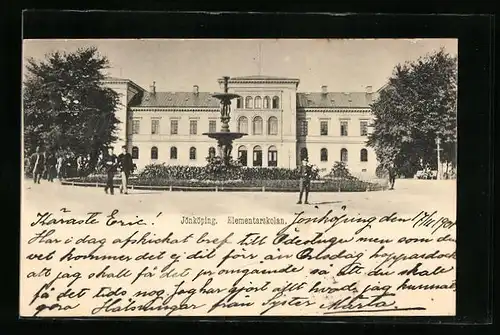 Jönköping. Elementarskolan.
Käraste Eric! Jonköping den 17/4 1901
Har i dag afskickat bref till men som den
vet kommer det ej dit förr än Onsdag hoppas dock
att jag skall få det per omgående så att du skall
få det tids nog. Jag har gjort allt hvad jag kunnat
göra Hälsningar från Syster Märta